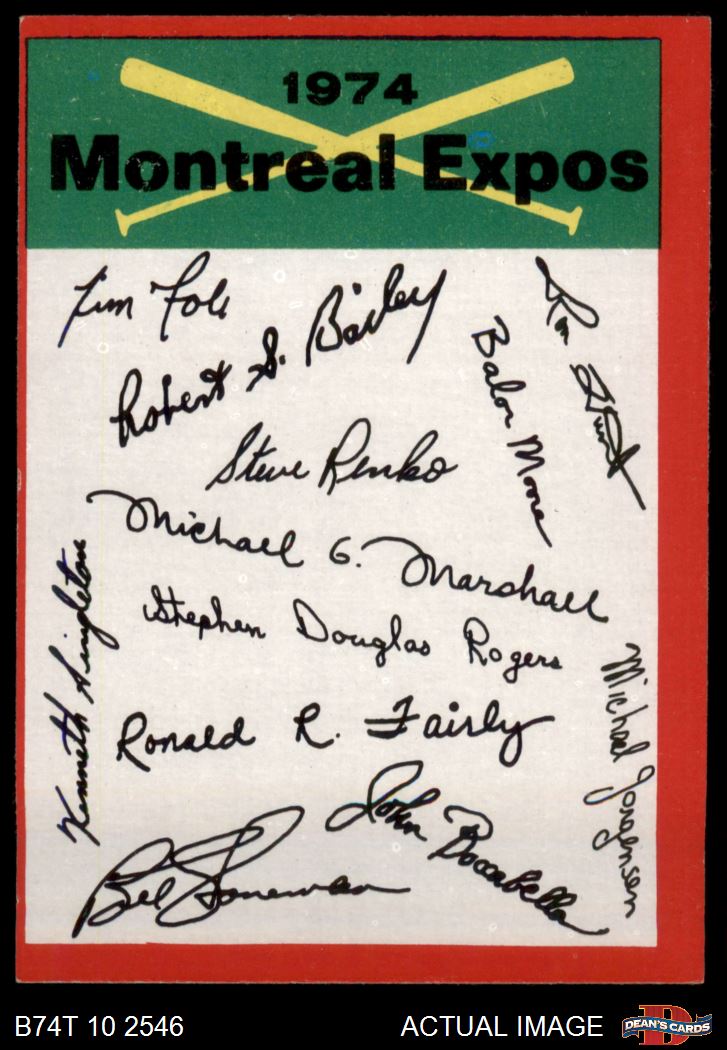 1974
Montreal Expos
Tim Foli
Robert S. Bailey
Ron Hunt
Balor Moore
Steve Renko
Michael G. Marshall
Stephen Douglas Rogers
Kenneth Singleton
Michael Jorgensen
Ronald R. Fairly
John Boccabella
Bill Stoneman
B74T 10 2546
ACTUAL IMAGE
D
DEAN'S CARDS